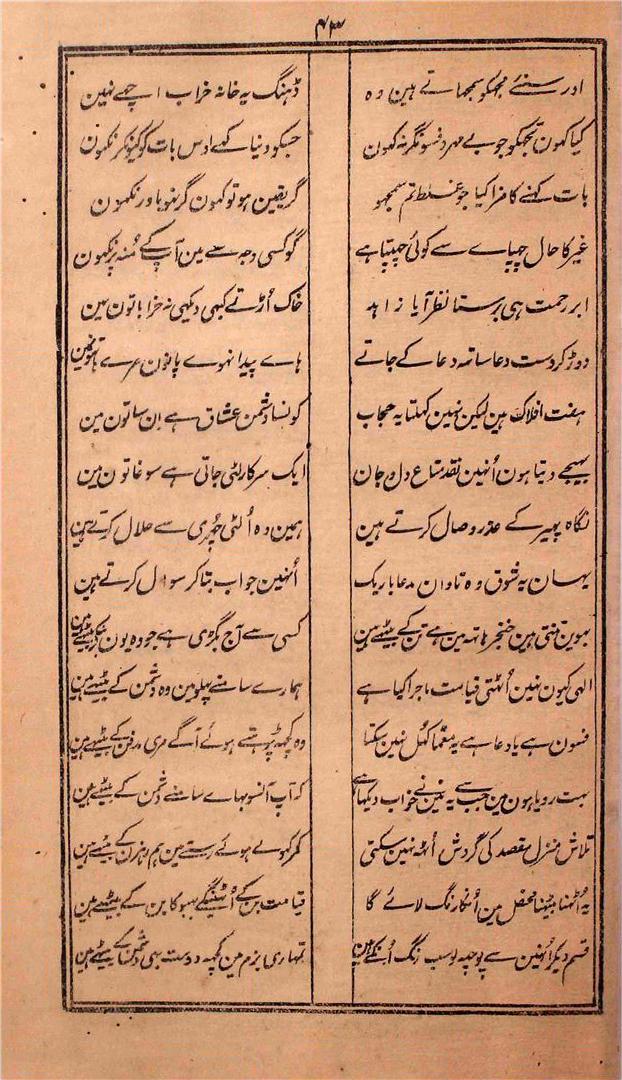 ۴۳
اور سنئے مجکو سمجھاتے ہین وہ
ڈہنگ یہ خانہ خراب اچھے نہین
کیا کہون تجھکو جو بے مہر و فسونگر نہ کہون
جبکو دنیا کہے اوس بات کو کیونکر نکہون
بات کہنے کا مزا کیا جو غلط تم سمجھو
گر یقین ہو تو کہون گر نہو باور نکہون
غیر کا حال چھپاے سے کوئی چھپتا ہے
گو کسی وجہ سے مین آپ کے مُنہ پر نکہون
ابر رحمت ہی برستا نظر آیا زاہد
خاک اُڑتے کبھی دیکھی نہ خراباتون مین
دوڑ کر دست دعا ساتھ دعا کے جاتے
ہاے پیدا نہوے پانون مرے ہاتونمین
ہفت افلاک ہین لیکن نہین کہلتا یہ حجاب
کونسا دشمن عشاق ہے اِن ساتون مین
بہیجے دیتا ہون اُنہین نقد متاع دل و جان
ایک سرکار لٹی جاتی ہے سوغاتون مین
نگاہ پہیر کے عذر وصال کرتے ہین
ہمین وہ اُلٹی چھری سے حلال کرتے ہین
یہان یہ شوق وہ نادان مدعا باریک
اُنہین جواب بتا کر سوال کرتے ہین
بہوین تنتی ہین خنجر ہاتھ مین ہے تن کے بیٹھے ہین
کسی سے آج بگڑی ہے جو وہ یون بنکے بیٹھے ہین
الہی کیون نہین اُٹھتی قیامت ماجرا کیا ہے
ہمارے سامنے پہلو مین وہ دشمن کے بیٹھے ہین
فسون ہے یا دعا ہے یہ معما کُہل نہین سکتا
وہ کچھ پڑہتے ہوئے آگے مری مدفن کے بیٹھے ہین
بہت رویا ہون مین جب سے یہ مین نے خواب دیکھا ہے
کہ آپ آنسو بہاے سامنے دشمن کے بیٹھے ہین
تلاش منزل مقصد کی گردش اُٹھ نہین سکتی
کمر کہولے ہوئے رستے مین ہم رہزن کے بیٹھے ہین
یہ اُٹھنا بیٹھنا محفل مین اُنکا رنگ لائے گا
قیامت بن کے اُٹھینگے بہبوکا بن کے بیٹھے ہین
قسم دیکر اُنہین سے پوچھ لو سب رنگ اُنکے ہین
تمہاری بزم مین کچھ دوست بھی دشمن کے بیٹھے ہین